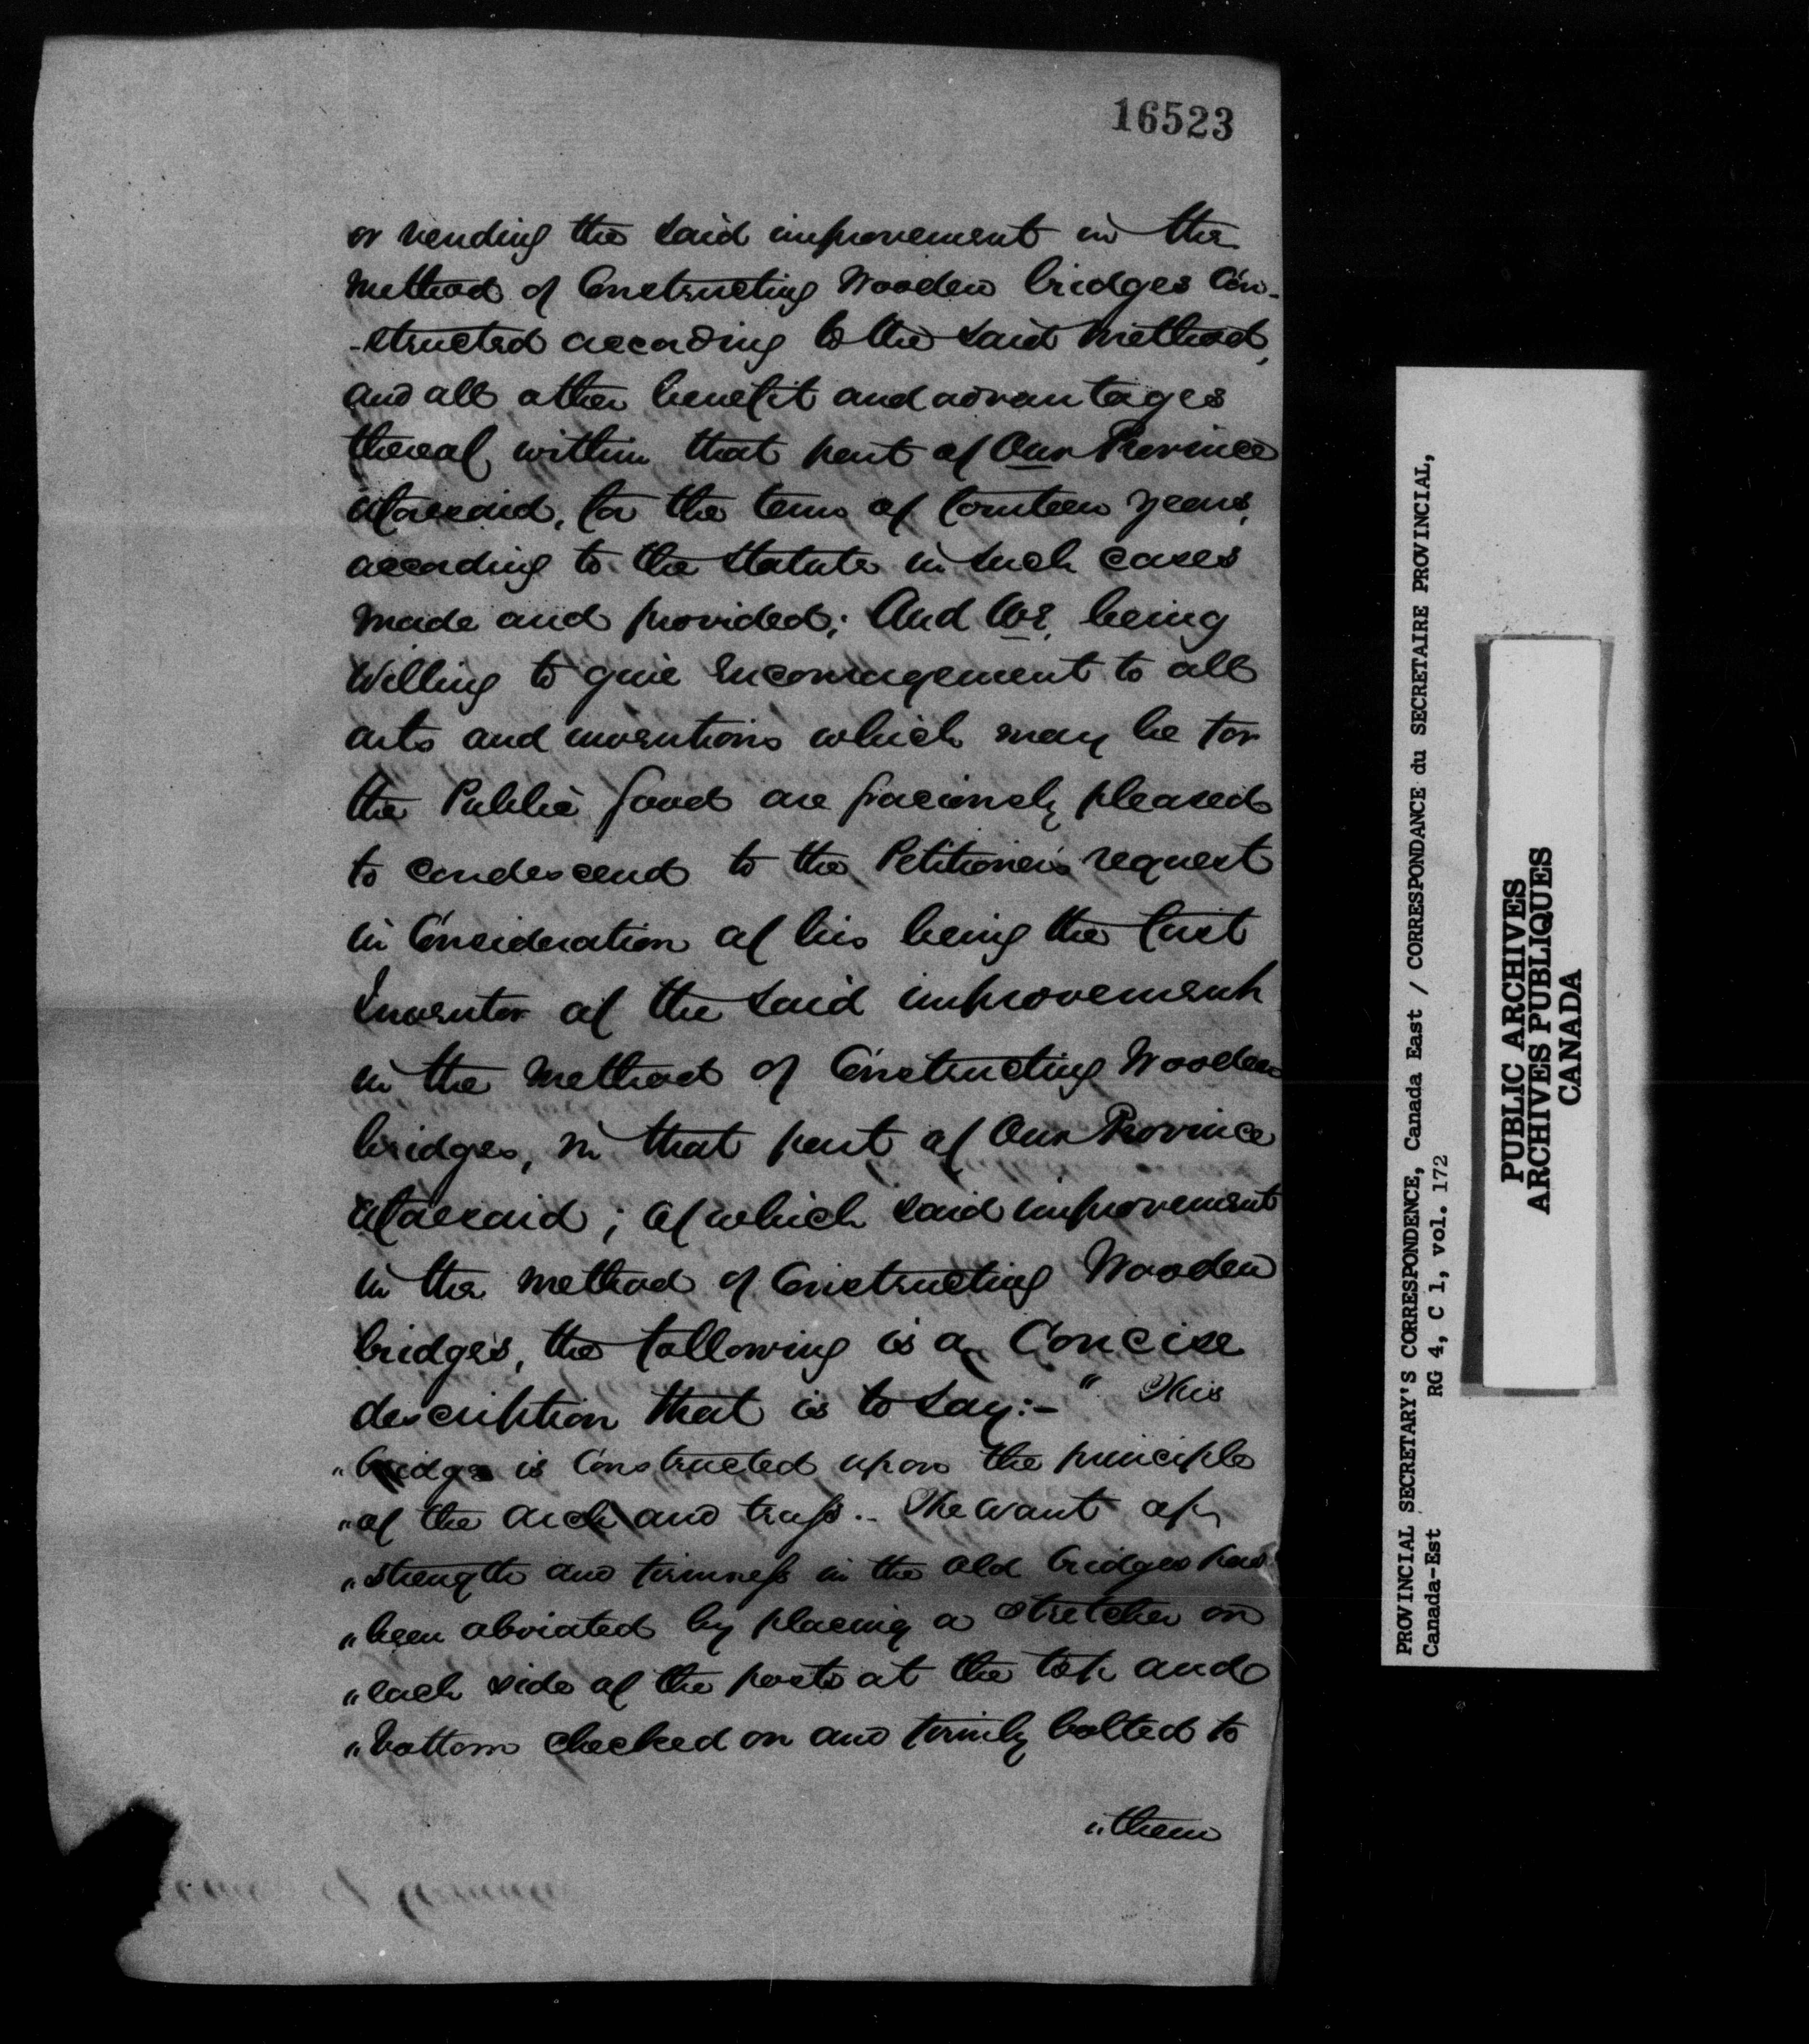 16523
or vending the said improvement in the
Method of Constructing Wooden bridges Con-
-structed according to the said Method,
and all other benefit and advantages
thereof, within that part of Our Province
aforesaid, for the term of fourteen years,
according to the Statute in such cases
made and provided; And We, being
Willing to give encouragement to all
arts and inventions which may be for
the Public good are graciously pleased
to condescend to the Petitioner's request
in Consideration of his being the first
Inventor of the said improvement
in the Method of Constructing Wooden
bridges, in that part of Our Province
aforesaid; of which said improvement
in the Method of Constructing Wooden
bridges, the following is a Concise
description that is to say:- " This
" bridge is Constructed upon the principle
" of the Arch and truss.. The want of
" strength and firmness in the old bridges has
" been obviated by placing a stretcher on
" each side of the posts at the top and
" bottom checked on and firmly bolted to
" them
PROVINCIAL SECRETARY'S CORRESPONDENCE, Canada East / CORRESPONDANCE du SECRETAIRE PROVINCIAL,
Canada-Est RG 4, C 1, vol. 172
PUBLIC ARCHIVES
ARCHIVES PUBLIQUES
CANADA